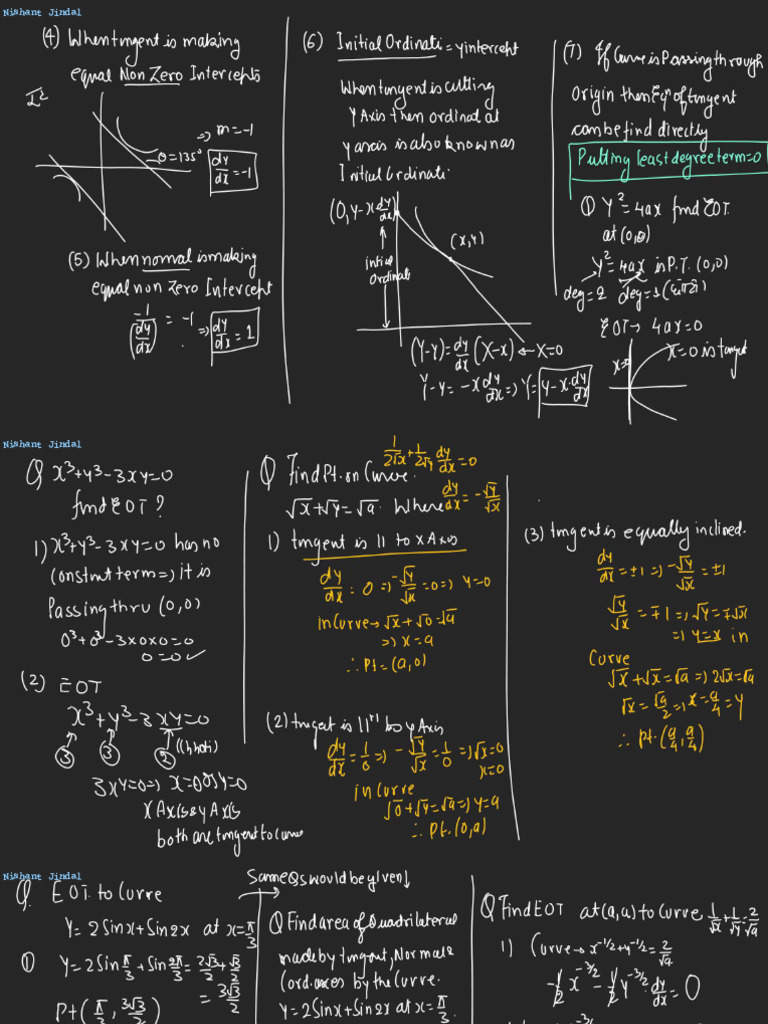 Nishant Jindal
(4) When tangent is making
equal Non Zero Intercepts
θ=135°
=> m=-1
dy/dx=-1
(5) When normal is making
equal non zero Intercept
-1/(dy/dx) = -1 => dy/dx = 1
(6) Initial Ordinate = y intercept
When tangent is cutting
Y Axis then ordinate at
y axis is also known as
Initial Ordinate.
(0, y-x dy/dx)
(x,y)
initial
ordinate
(Y-y)=dy/dx (X-x) ← X=0
Y-y= -x dy/dx => Y= y-x.dy/dx
(7) If Curve is Passing through
Origin then Eqn of tangent
can be find directly
Putting least degree term=0
① Y²=4ax find EOT.
at (0,0)
Y²=4ax is P.T. (0,0)
deg=2
EOT→ 4ax=0
x=0
x=0 is tangent
Nishant Jindal
Q x³+y³-3xy=0
find EOT?
1) x³+y³-3xy=0 has no
Constant term=> it is
Passing thru (0,0)
0³+0³-3x0x0=0
0=0 ✓
(2) EOT
x³+y³-3xy=0
③ ③ ②
3xy=0=> x=0 or y=0
X Axis & y Axis
both are tangent to curve
Q Find Pt. on Curve.
1/2√x + 1/2√y dy/dx=0
√x+√y=√a. Where dy/dx=-√y/√x
1) tangent is 11 to x Axis
dy/dx=0=>-√y/√x=0=> y=0
in Curve→√x+√0=√a
=> x=a
∴ Pt=(a,0)
(2) tangent is 11el to y Axis
dy/dx=1/0=>-√y/√x=1/0=>√x=0
x=0
in Curve
√0+√y=√a=> y=a
∴ Pt.(0,a)
(3) tangent is equally inclined.
dy/dx=±1=>-√y/√x=±1
√y/√x=∓1=>√y=∓√x
=> y=x in
Curve
√x+√x=√a=>2√x=√a
√x=√a/2=>x=a/4=y
∴ Pt.(a/4,a/4)
Nishant Jindal
Q. EOT. to Curve
Y=2Sinx+Sin2x at x=π/3
① Y=2Sinπ/3+Sin2π/3=2√3/2+√3/2
=3√3/2
Pt(π/3, 3√3/2)
Same Qs would be given↓
Q Find area of Quadrilateral
made by tangent, Normal &
Cord. axes by the Curve.
Y=2Sinx+Sin2x at x=π/3.
Q Find EOT at (a,a) to Curve 1/√x+1/√y=2/√a
1) Curve→x^-1/2+y^-1/2=2/√a
-1/2 x^-3/2 -1/2 y^-3/2.dy/dx=0